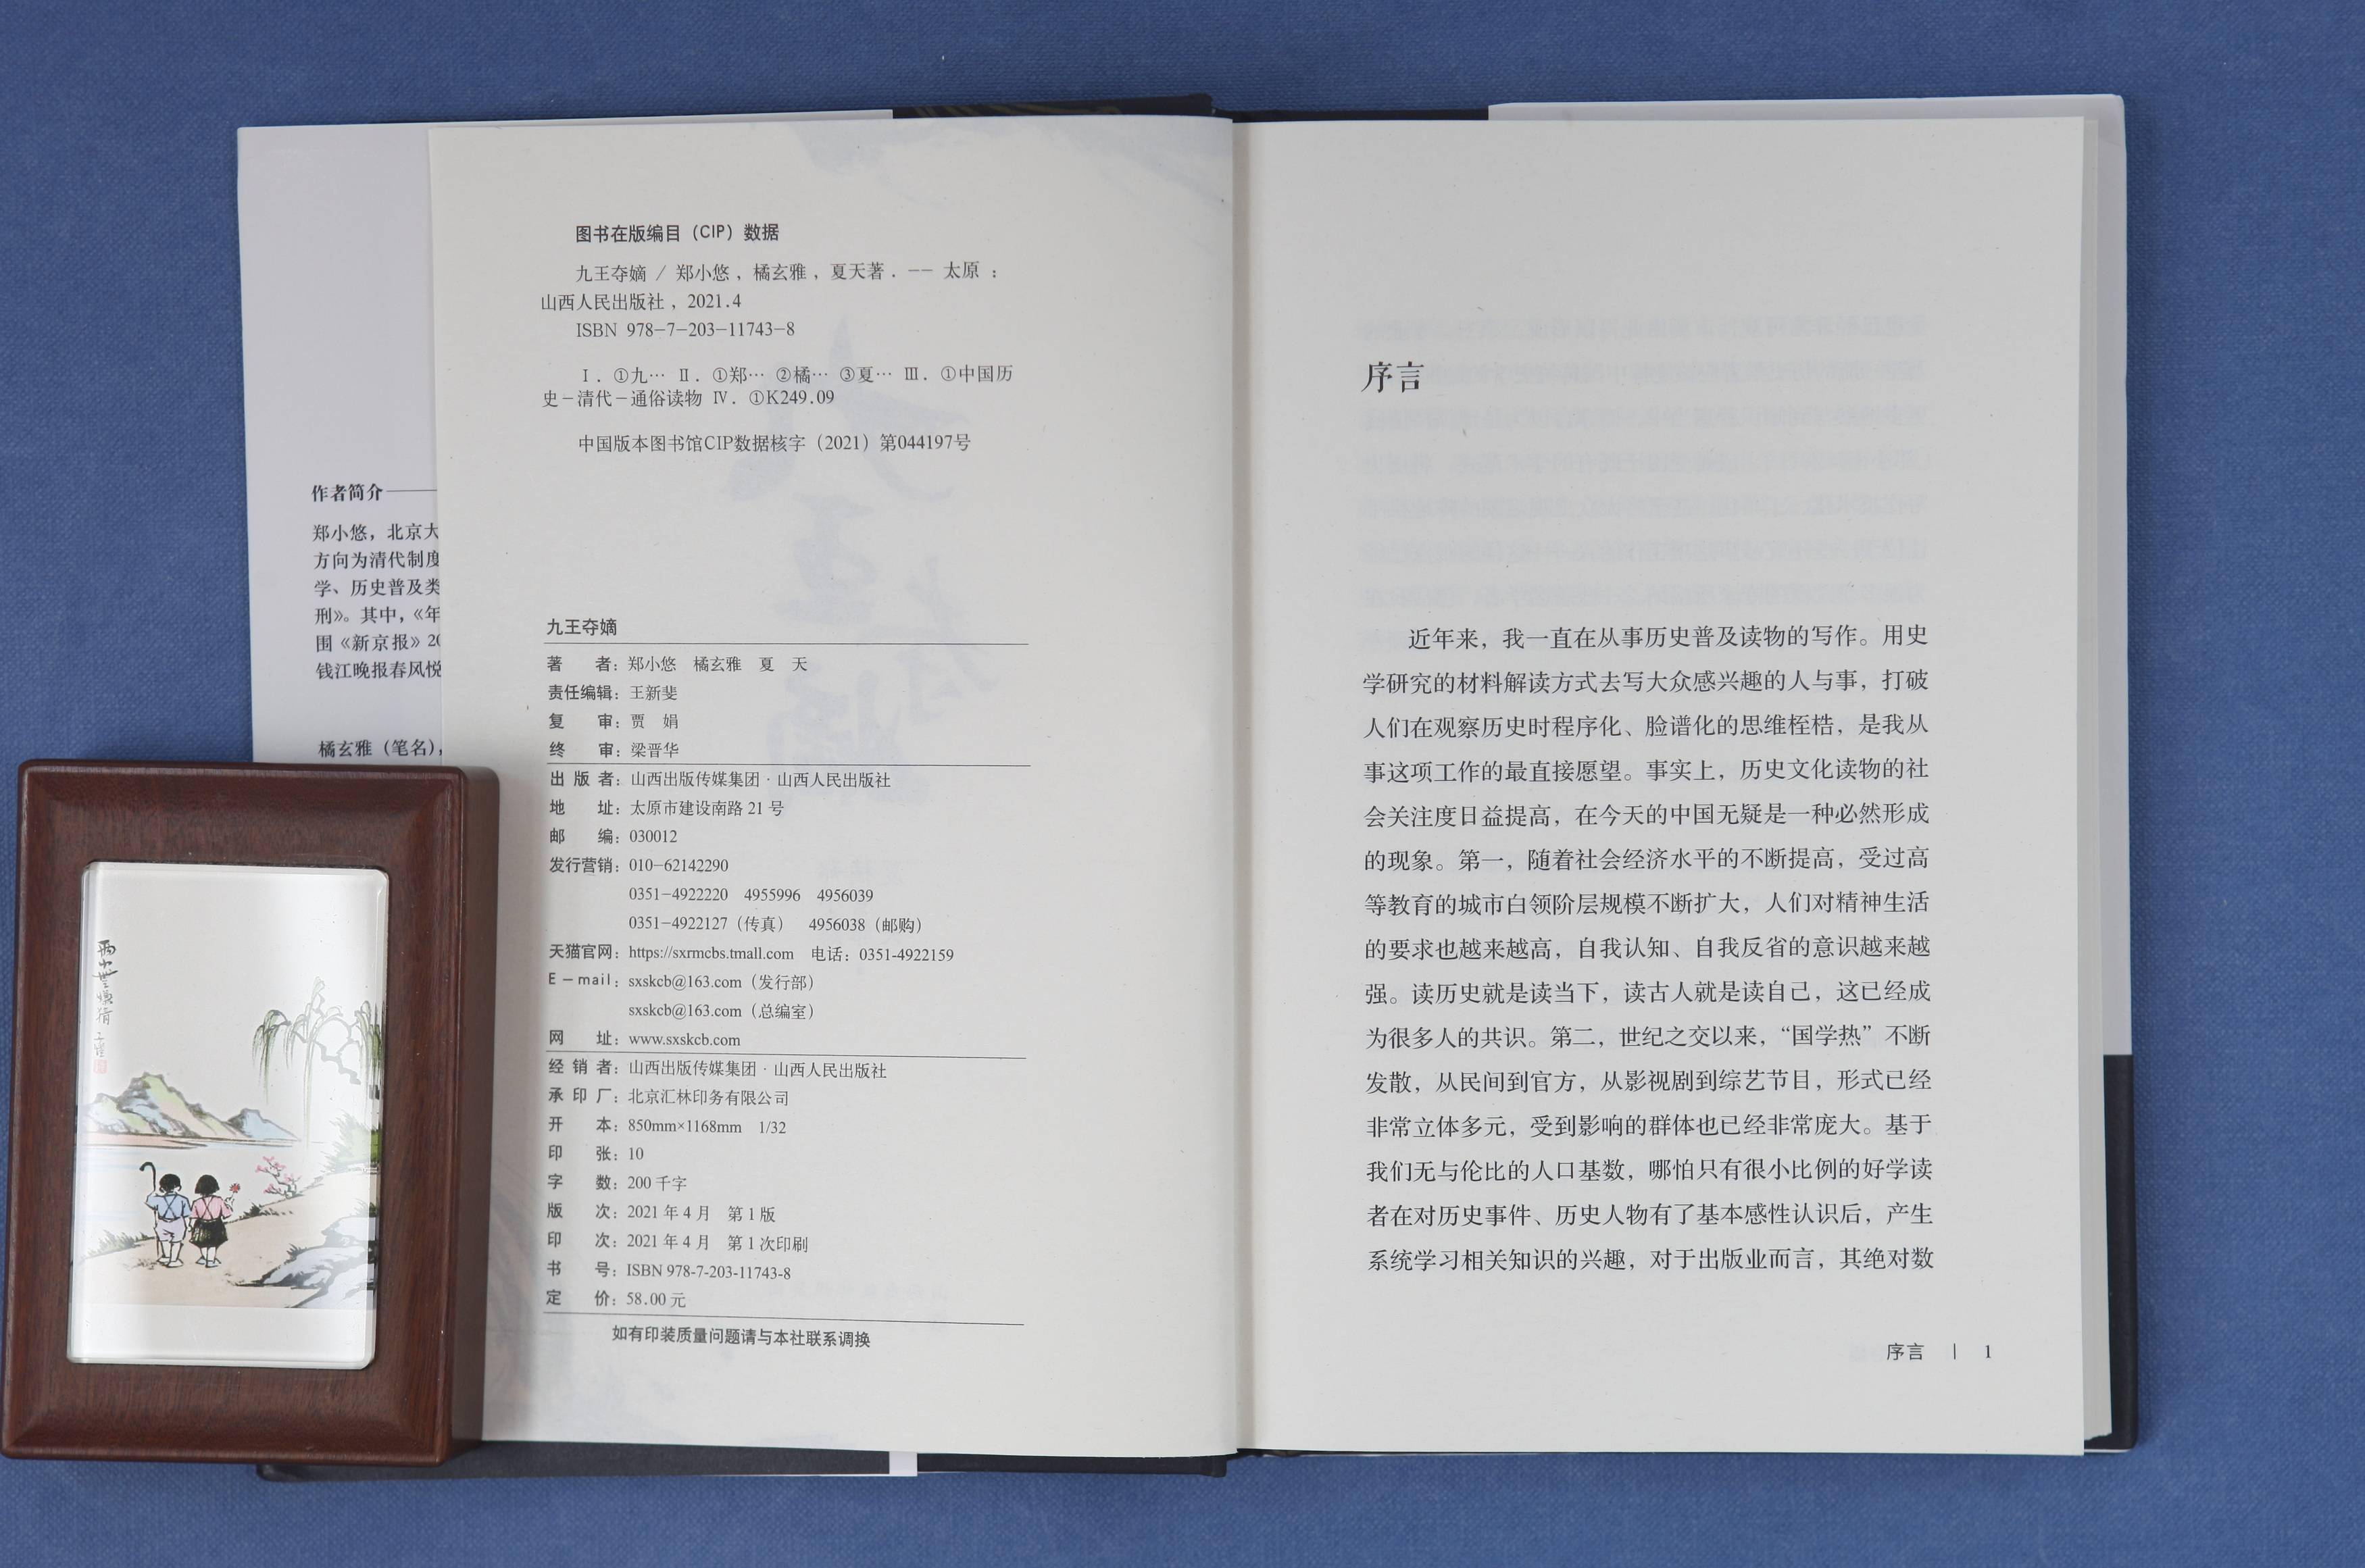 作者简介
郑小悠，北京大
方向为清代制度
学、历史普及类
刑》。其中，《年
围《新京报》20
钱江晚报春风悦
橘玄雅（笔名），
两小无嫌猜
图书在版编目（CIP）数据
九王夺嫡 / 郑小悠，橘玄雅，夏天著．—— 太原：
山西人民出版社，2021.4
ISBN 978-7-203-11743-8
Ⅰ．①九… Ⅱ．①郑… ②橘… ③夏… Ⅲ．①中国历
史－清代－通俗读物 Ⅳ．①K249.09
中国版本图书馆CIP数据核字（2021）第044197号
九王夺嫡
著　　者：郑小悠　橘玄雅　夏　天
责任编辑：王新斐
复　　审：贾　娟
终　　审：梁晋华
出 版 者：山西出版传媒集团·山西人民出版社
地　　址：太原市建设南路 21 号
邮　　编：030012
发行营销：010-62142290
0351-4922220　4955996　4956039
0351-4922127（传真）　4956038（邮购）
天猫官网：https://sxrmcbs.tmall.com　电话：0351-4922159
E－mail：sxskcb@163.com（发行部）
sxskcb@163.com（总编室）
网　　址：www.sxskcb.com
经 销 者：山西出版传媒集团·山西人民出版社
承 印 厂：北京汇林印务有限公司
开　　本：850mm×1168mm　1/32
印　　张：10
字　　数：200 千字
版　　次：2021 年 4 月　第 1 版
印　　次：2021 年 4 月　第 1 次印刷
书　　号：ISBN 978-7-203-11743-8
定　　价：58.00 元
如有印装质量问题请与本社联系调换
序言
近年来，我一直在从事历史普及读物的写作。用史
学研究的材料解读方式去写大众感兴趣的人与事，打破
人们在观察历史时程序化、脸谱化的思维桎梏，是我从
事这项工作的最直接愿望。事实上，历史文化读物的社
会关注度日益提高，在今天的中国无疑是一种必然形成
的现象。第一，随着社会经济水平的不断提高，受过高
等教育的城市白领阶层规模不断扩大，人们对精神生活
的要求也越来越高，自我认知、自我反省的意识越来越
强。读历史就是读当下，读古人就是读自己，这已经成
为很多人的共识。第二，世纪之交以来，“国学热”不断
发散，从民间到官方，从影视剧到综艺节目，形式已经
非常立体多元，受到影响的群体也已经非常庞大。基于
我们无与伦比的人口基数，哪怕只有很小比例的好学读
者在对历史事件、历史人物有了基本感性认识后，产生
系统学习相关知识的兴趣，对于出版业而言，其绝对数
序言 | 1